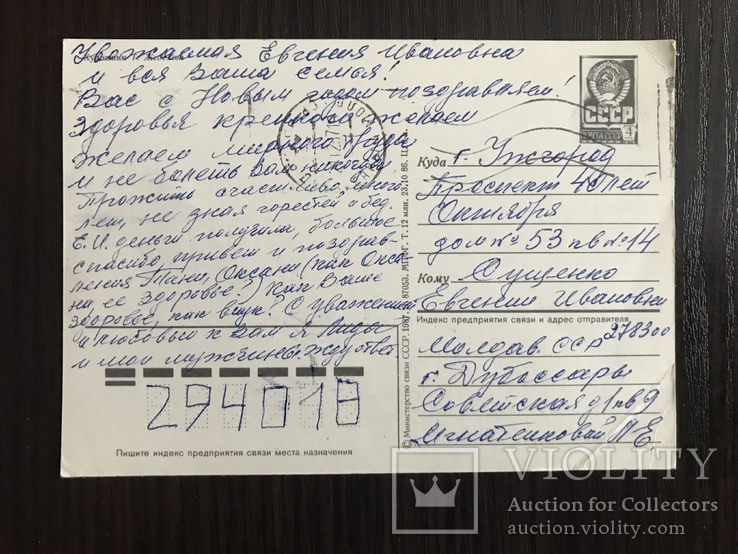 Уважаемая Евгения Ивановна
и вся Ваша семья!
Вас с Новым годом поздравляем!
Здоровья крепкого желаем
желаем мирного
и не болеть Вам никогда
Прожить счастливо, много
лет, не зная горестей и бед.
Е.И. деньги получила, большое
спасибо, привет и поздрав-
ления Тани, Оксаны (как Окса-
на, ее здоровье?) Как Ваше
здоровье, как внук? С уважением
и любовью к Вам я Лида
и мои мужчины
294018
Пишите индекс предприятия связи места назначения
© Министерство связи СССР. 1987. З. 87053. МПФГ. Т. 12 млн. 23.10 86. Ц. 4 к.
СССР
ПОЧТА СССР 4
Куда г. Ужгород
Проспект 40 лет
Октября
дом № 53 кв № 14
Кому Сущенко
Евгении Ивановны
Индекс предприятия связи и адрес отправителя
278300
Молдав. ССР
г. Дубоссары
Советская
VIOLITY
Auction for Collectors
auction.violity.com